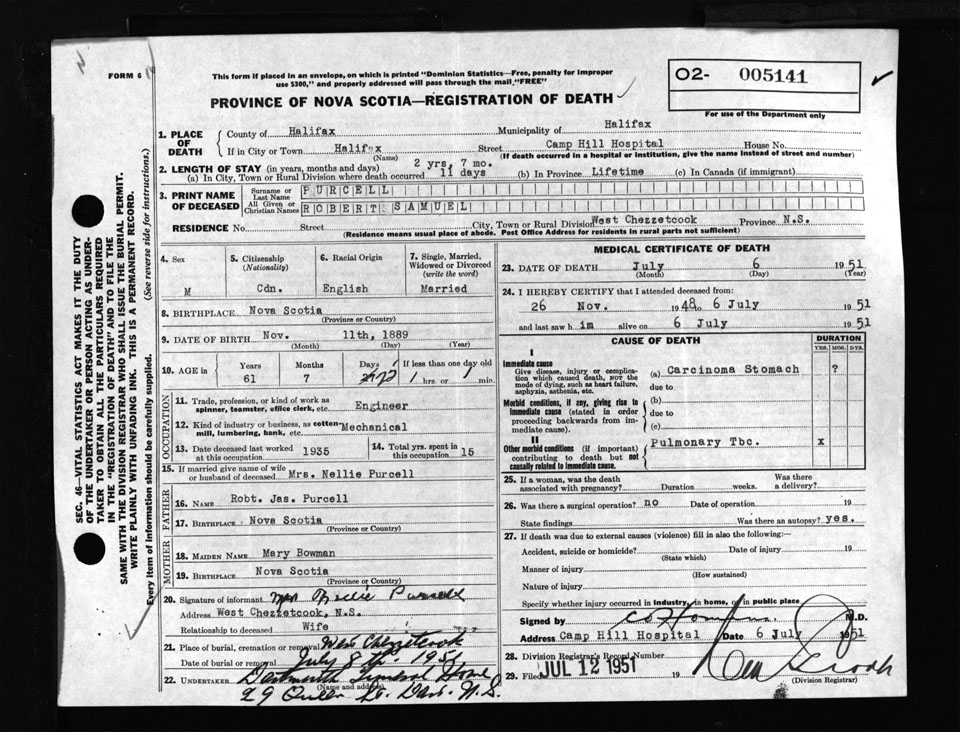 FORM 6
This form if placed in an envelope, on which is printed "Dominion Statistics—Free, penalty for improper
use $300," and properly addressed will pass through the mail "FREE"
PROVINCE OF NOVA SCOTIA—REGISTRATION OF DEATH
O2- 005141
For use of the Department only
1. PLACE OF DEATH
County of Halifax Municipality of Halifax
If in City or Town Halifax Street Camp Hill Hospital House No.
(Name) (If death occurred in a hospital or institution, give the name instead of street and number)
2. LENGTH OF STAY (in years, months and days) 2 yrs, 7 mo.
(a) In City, Town or Rural Division where death occurred 11 days (b) In Province Lifetime (c) In Canada (if immigrant)
3. PRINT NAME OF DECEASED
Surname or Last Name PURCELL
All Given or Christian Names ROBERT SAMUEL
RESIDENCE No. Street City, Town or Rural Division West Chezzetcook Province N.S.
(Residence means usual place of abode. Post Office Address for residents in rural parts not sufficient)
4. Sex
M
5. Citizenship
(Nationality)
Cdn.
6. Racial Origin
English
7. Single, Married,
Widowed or Divorced
(write the word)
Married
8. BIRTHPLACE Nova Scotia
(Province or Country)
9. DATE OF BIRTH Nov. 11th, 1889
(Month) (Day) (Year)
10. AGE in
Years Months Days If less than one day old
61 7 hrs. or min.
OCCUPATION
11. Trade, profession, or kind of work as
spinner, teamster, office clerk, etc. Engineer
12. Kind of industry or business, as cotton-
mill, lumbering, bank, etc. Mechanical
13. Date deceased last worked
at this occupation 1935
14. Total yrs. spent in
this occupation 15
15. If married give name of wife
or husband of deceased Mrs. Nellie Purcell
FATHER
16. NAME Robt. Jas. Purcell
17. BIRTHPLACE Nova Scotia
(Province or Country)
MOTHER
18. MAIDEN NAME Mary Bowman
19. BIRTHPLACE Nova Scotia
(Province or Country)
20. Signature of informant Mrs Nellie Purcell
Address West Chezzetcook, N.S.
Relationship to deceased Wife
21. Place of burial, cremation or removal West Chezzetcook
Date of burial or removal July 8th. 1951
22. UNDERTAKER Dartmouth Funeral Home
(Name and address)
29 Queen St. Dart. N.S.
MEDICAL CERTIFICATE OF DEATH
23. DATE OF DEATH July 6 1951
(Month) (Day) (Year)
24. I HEREBY CERTIFY that I attended deceased from:
26 Nov. 1948 to 6 July 1951
and last saw him alive on 6 July 1951
CAUSE OF DEATH
DURATION
YRS. MOS. DYS.
I
Immediate cause
Give disease, injury or complica-
tion which caused death, NOT the
mode of dying, such as heart failure,
asphyxia, asthenia, etc.
(a) Carcinoma Stomach ?
due to
Morbid conditions, if any, giving rise to
immediate cause (stated in order
proceeding backwards from im-
mediate cause).
(b)
due to
(c)
II
Other morbid conditions (if important)
contributing to death but not
causally related to immediate cause.
Pulmonary Tbc. x
25. If a woman, was the death
associated with pregnancy? Duration weeks. Was there
a delivery?
26. Was there a surgical operation? no Date of operation 19
State findings Was there an autopsy? yes.
27. If death was due to external causes (violence) fill in also the following:—
Accident, suicide or homicide? Date of injury 19
(State which)
Manner of injury
(How sustained)
Nature of injury
Specify whether injury occurred in industry, in home, or in public place
Signed by M.D.
Address Camp Hill Hospital Date 6 July 1951
28. Division Registrar's Record Number
29. Filed JUL 12 1951 19
(Division Registrar)
SEC. 46—VITAL STATISTICS ACT MAKES IT THE DUTY
OF THE UNDERTAKER OR PERSON ACTING AS UNDER-
TAKER TO OBTAIN ALL THE PARTICULARS REQUIRED
IN THE "REGISTRATION OF DEATH" AND TO FILE THE
SAME WITH THE DIVISION REGISTRAR WHO SHALL ISSUE THE BURIAL PERMIT.
WRITE PLAINLY WITH UNFADING INK. THIS IS A PERMANENT RECORD.
Every item of information should be carefully supplied. (See reverse side for instructions.)